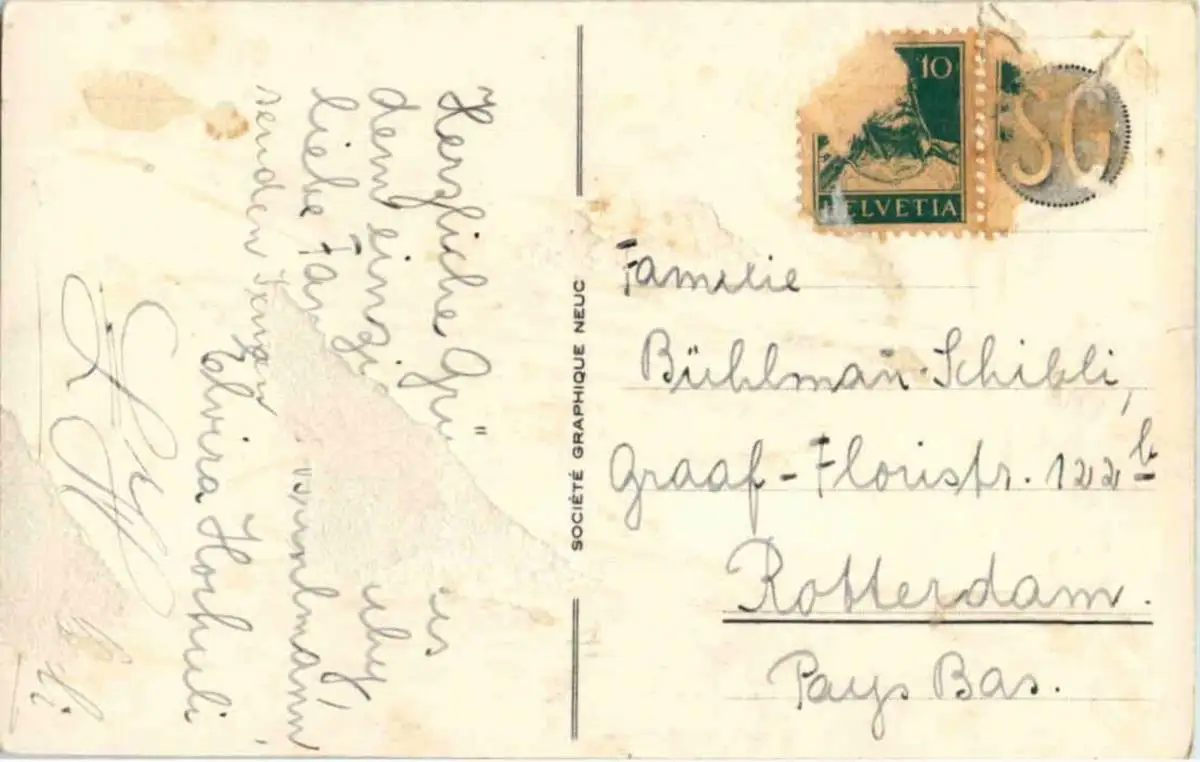 Herzliche Grü
dem einzig
liebe Fa
senden
Elvira Hochuli
SOCIÉTÉ GRAPHIQUE NEUC
10
HELVETIA
SG
Familie
Bühlman̄-Schibli,
Graaf-Floristr. 122b
Rotterdam.
Pays Bas.